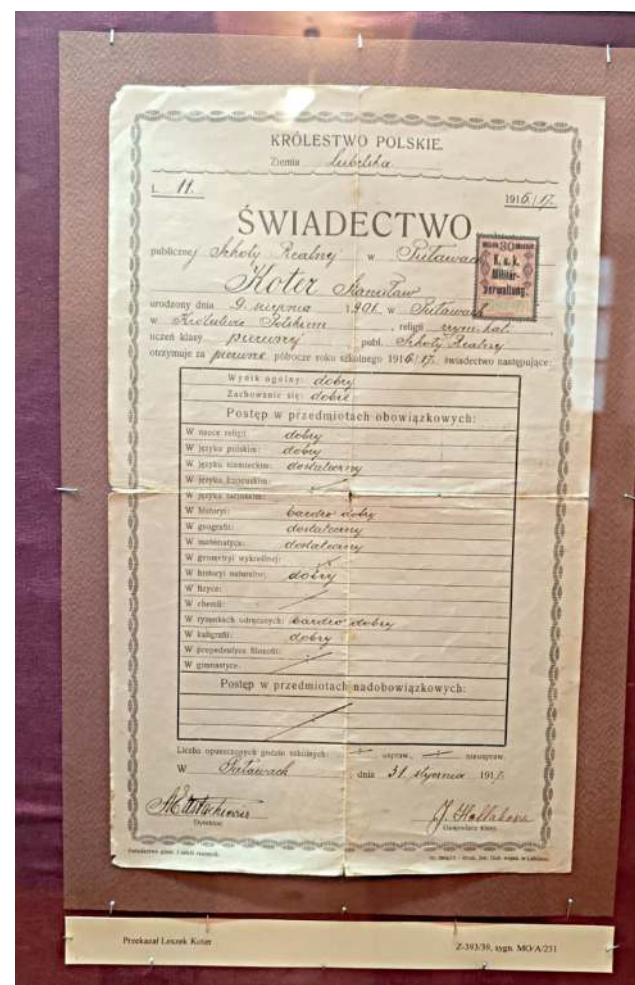 KRÓLESTWO POLSKIE.
Ziemia lubelska
L. 11. 1916/17.
ŚWIADECTWO
publicznej Szkoły Realnej w Puławach
Koter Stanisław
urodzony dnia 9. sierpnia 1901. w Puławach
w Królestwie Polskiem, religii rzym. kat.,
uczeń klasy pierwszej publ. Szkoły Realnej
otrzymuje za pierwsze półrocze roku szkolnego 1916/17. świadectwo następujące:
30
K. u. k.
Militär-
verwaltung.
Wynik ogólny: dobry
Zachowanie się: dobre
Postęp w przedmiotach obowiązkowych:
W nauce religii: dobry
W języku polskim: dobry
W języku niemieckim: dostateczny
W języku francuskim:
W języku łacińskim:
W historyi: bardzo dobry
W geografii: dostateczny
W matematyce: dostateczny
W geometryi wykreślnej:
W historyi naturalnej: dobry
W fizyce:
W chemii:
W rysunkach odręcznych: bardzo dobry
W kaligrafii: dobry
W propedeutyce filozofii:
W gimnastyce:
Postęp w przedmiotach nadobowiązkowych:
Liczba opuszczonych godzin szkolnych: uspraw., nieuspraw.
W Puławach, dnia 31 stycznia 1917.
Dyrektor. Gospodarz klasy.
Przekazał Leszek Koter Z-393/39, sygn. MO/A/231